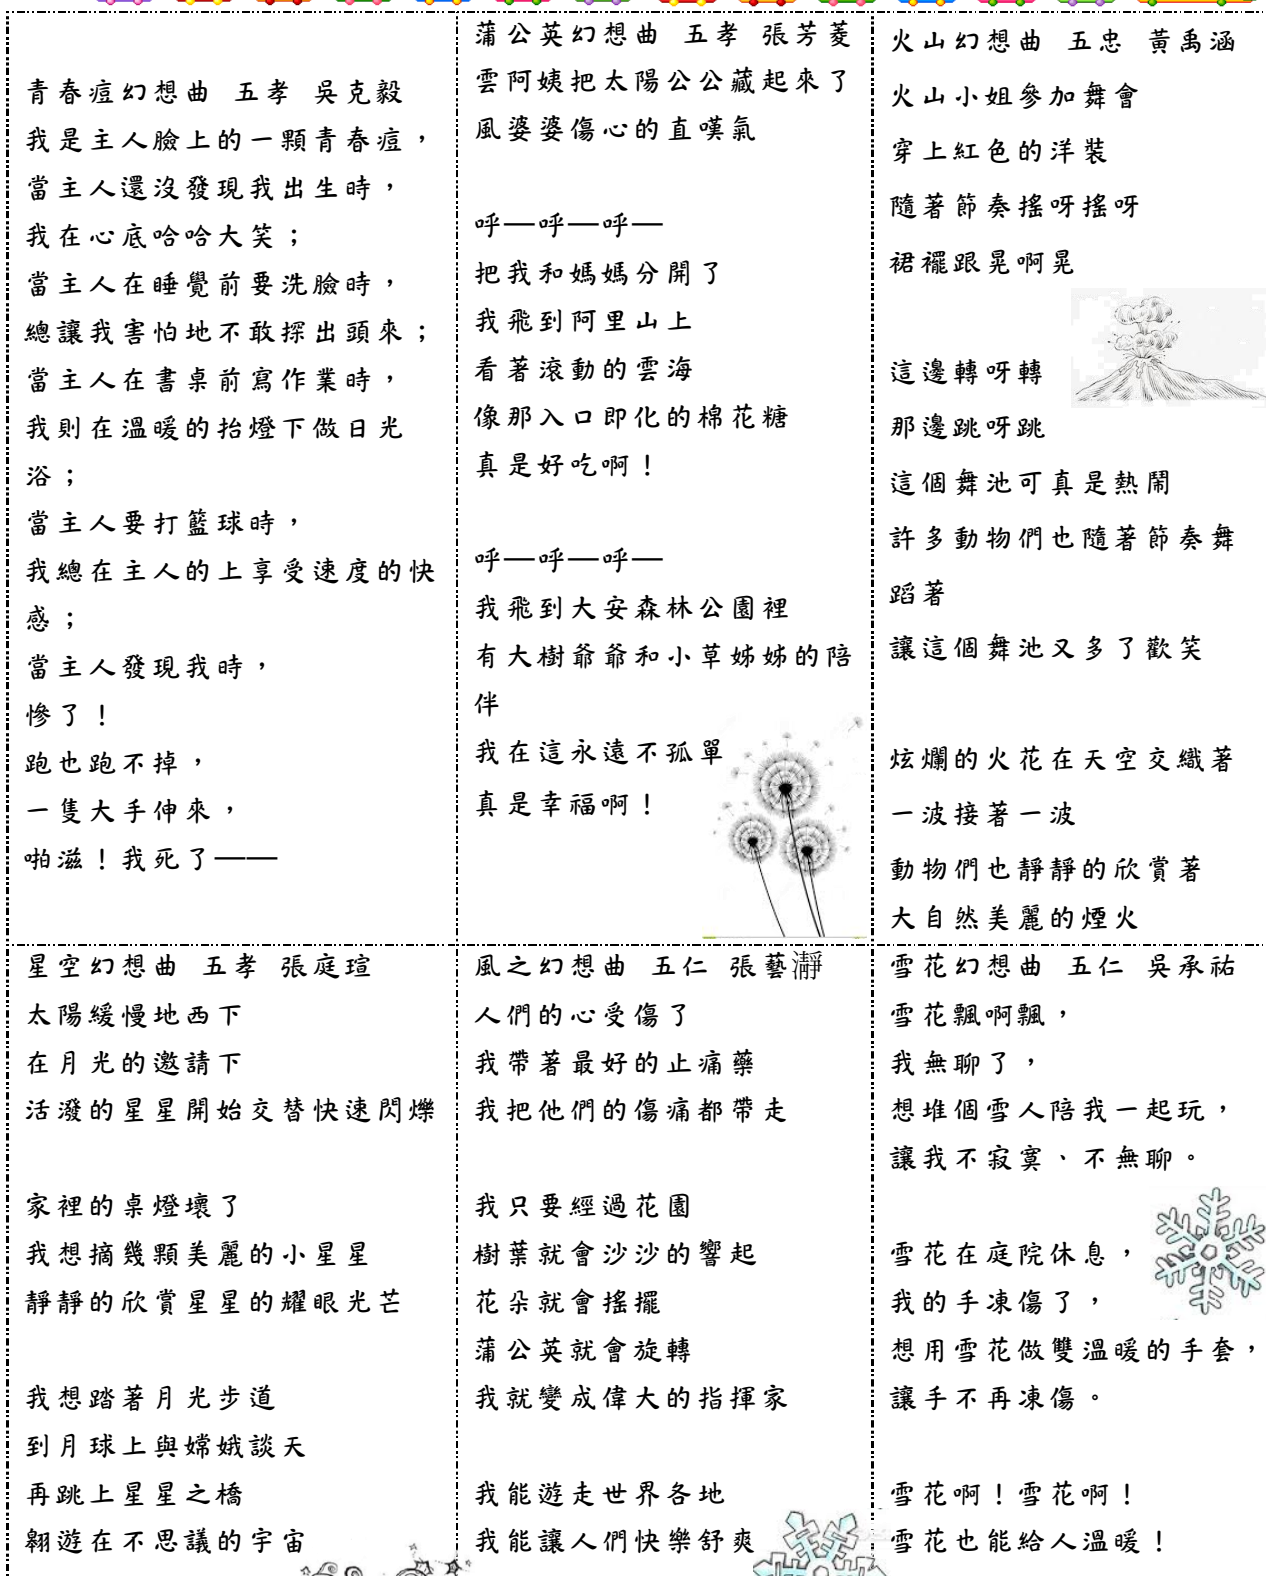 青春痘幻想曲 五孝 吳克毅
我是主人臉上的一顆青春痘，
當主人還沒發現我出生時，
我在心底哈哈大笑；
當主人在睡覺前要洗臉時，
總讓我害怕地不敢探出頭來；
當主人在書桌前寫作業時，
我則在溫暖的抬燈下做日光
浴；
當主人要打籃球時，
我總在主人的上享受速度的快
感；
當主人發現我時，
慘了！
跑也跑不掉，
一隻大手伸來，
啪滋！我死了——
蒲公英幻想曲 五孝 張芳菱
雲阿姨把太陽公公藏起來了
風婆婆傷心的直嘆氣
呼—呼—呼—
把我和媽媽分開了
我飛到阿里山上
看著滾動的雲海
像那入口即化的棉花糖
真是好吃啊！
呼—呼—呼—
我飛到大安森林公園裡
有大樹爺爺和小草姊姊的陪
伴
我在這永遠不孤單
真是幸福啊！
火山幻想曲 五忠 黃禹涵
火山小姐參加舞會
穿上紅色的洋裝
隨著節奏搖呀搖呀
裙襬跟晃啊晃
這邊轉呀轉
那邊跳呀跳
這個舞池可真是熱鬧
許多動物們也隨著節奏舞
蹈著
讓這個舞池又多了歡笑
炫爛的火花在天空交織著
一波接著一波
動物們也靜靜的欣賞著
大自然美麗的煙火
星空幻想曲 五孝 張庭瑄
太陽緩慢地西下
在月光的邀請下
活潑的星星開始交替快速閃爍
家裡的桌燈壞了
我想摘幾顆美麗的小星星
靜靜的欣賞星星的耀眼光芒
我想踏著月光步道
到月球上與嫦娥談天
再跳上星星之橋
翱遊在不思議的宇宙
風之幻想曲 五仁 張藝瀞
人們的心受傷了
我帶著最好的止痛藥
我把他們的傷痛都帶走
我只要經過花園
樹葉就會沙沙的響起
花朵就會搖擺
蒲公英就會旋轉
我就變成偉大的指揮家
我能遊走世界各地
我能讓人們快樂舒爽
雪花幻想曲 五仁 吳承祐
雪花飄啊飄，
我無聊了，
想堆個雪人陪我一起玩，
讓我不寂寞、不無聊。
雪花在庭院休息，
我的手凍傷了，
想用雪花做雙溫暖的手套，
讓手不再凍傷。
雪花啊！雪花啊！
雪花也能給人溫暖！